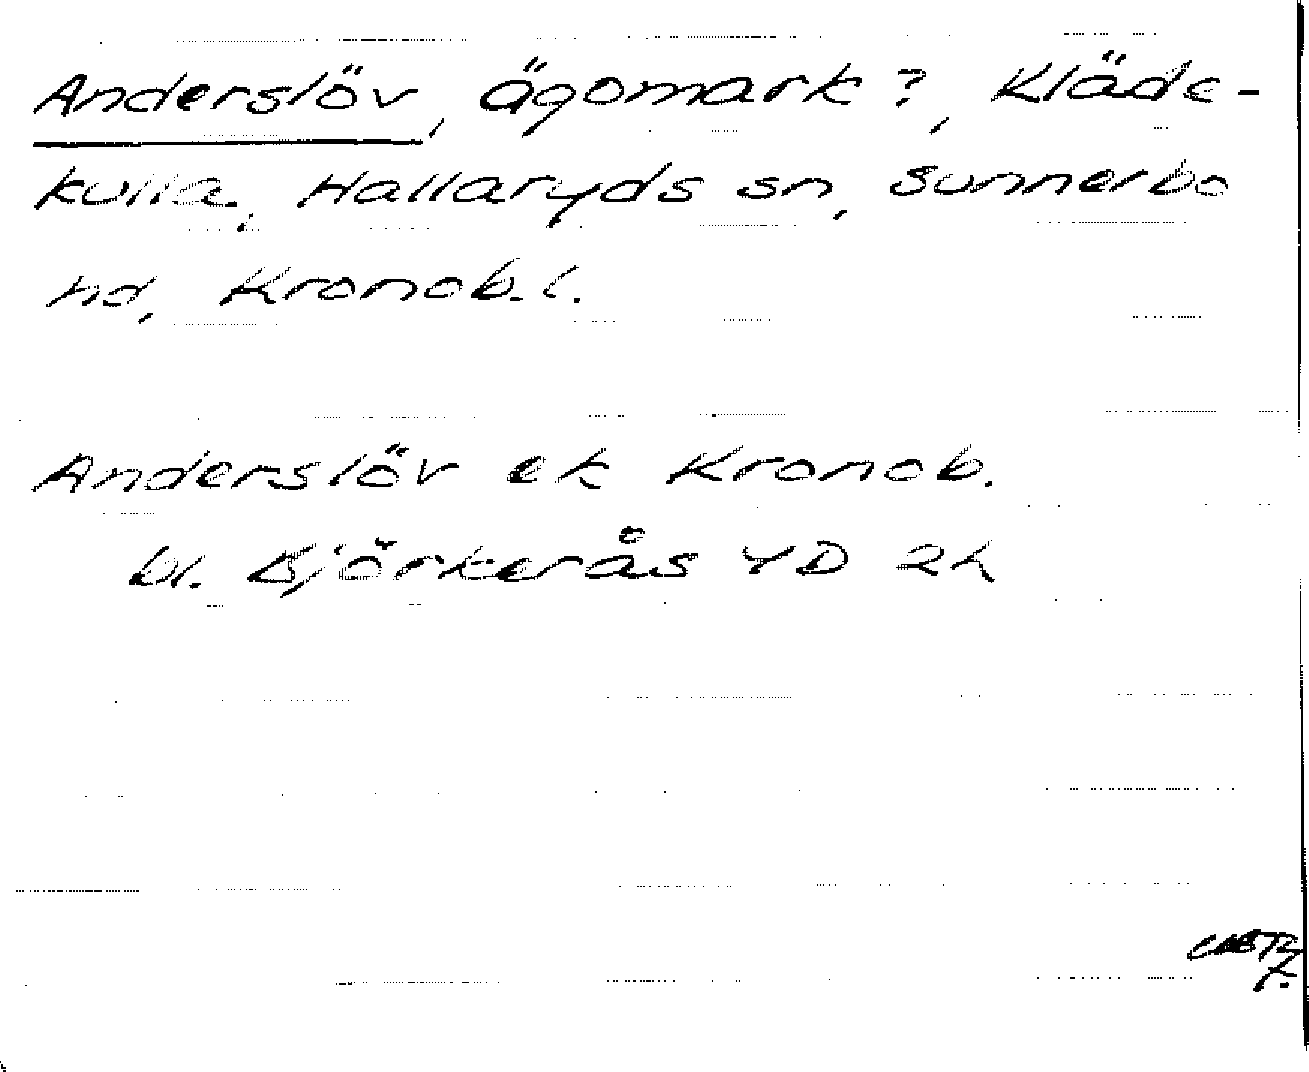 Anderslöv, ägomark?, Kläde-
kulla, Hallaryds sn, Sunnerbo
hd, Kronob. l.
Anderslöv ek Kronob.
bl. Björkerås 4D 2h